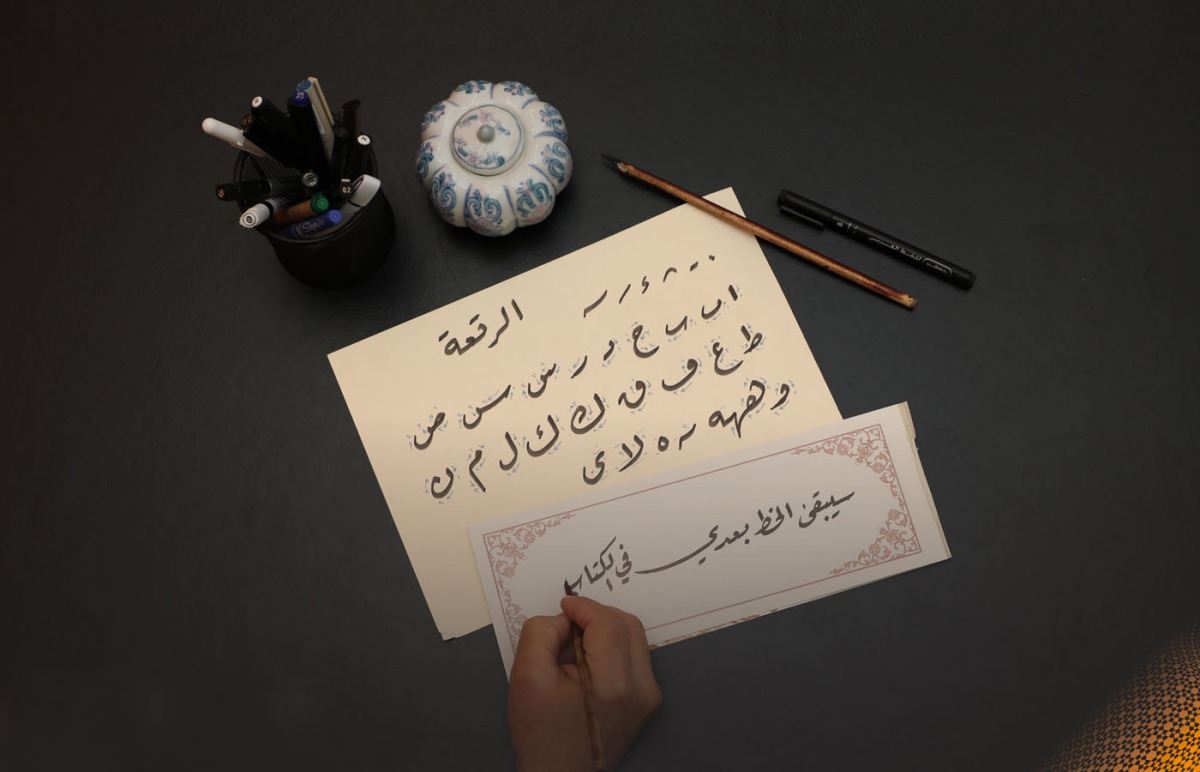 الرقعة
ا ب ب ح د ر س س ص
ط ع ف ق ك ك ل م ن
و ههه ه لا ى
سيبقى الخط بعدي في الكتاب